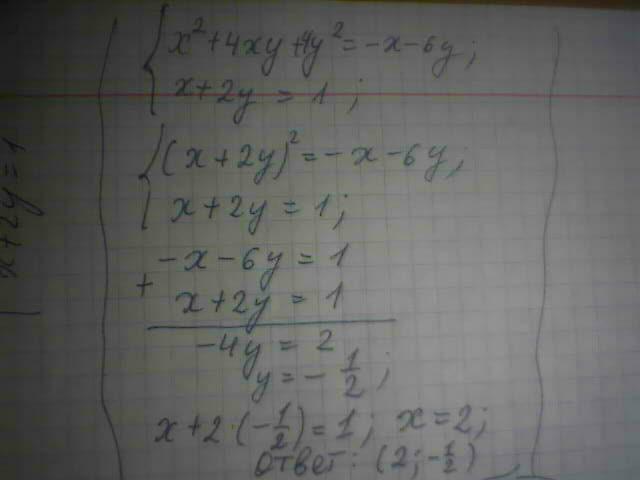 x² + 4xy + 4y² = -x - 6y;
x + 2y = 1;
(x + 2y)² = -x - 6y;
x + 2y = 1;
-x - 6y = 1
+ x + 2y = 1
-4y = 2
y = -1/2;
x + 2·(-1/2) = 1; x = 2;
ответ: (2; -1/2)
x + 2y = 1